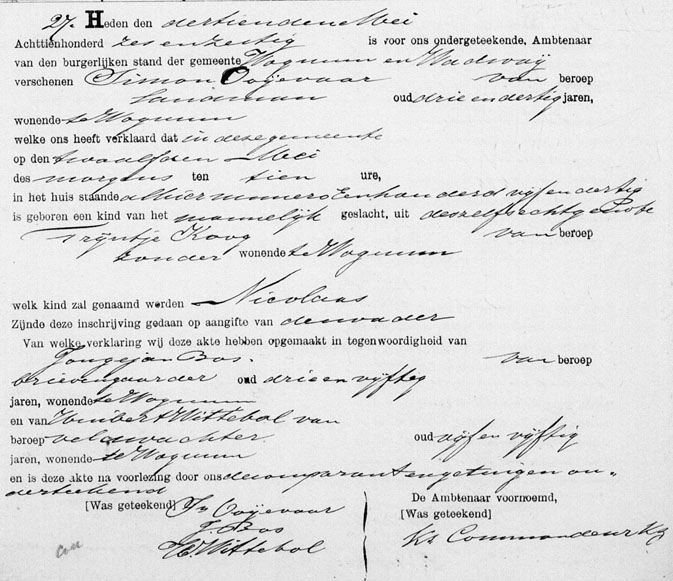 27. Heden den dertienden Mei
Achttienhonderd zes en zestig is voor ons ondergeteekende, Ambtenaar
van den burgerlijken stand der gemeente Wognum en Wadway
verschenen Simon Ooyevaar van beroep
Landman oud drie en dertig jaren,
wonende te Wognum
welke ons heeft verklaard dat in deze gemeente
op den twaalfden Mei
des morgens ten tien ure,
in het huis staande alhier numero Eenhonderd vijf en dertig
is geboren een kind van het mannelijk geslacht, uit deszelfs echtgenote
Trijntje Koog van beroep
zonder wonende te Wognum
welk kind zal genaamd worden Nicolaas
Zijnde deze inschrijving gedaan op aangifte van den vader
Van welke verklaring wij deze akte hebben opgemaakt in tegenwoordigheid van
Jongejan Bos. van beroep
brievengaarder oud drie en vijftig
jaren, wonende te Wognum
en van Huibert Wittebol van
beroep veldwachter oud vijf en vijftig
jaren, wonende te Wognum
en is deze akte na voorlezing door ons de comparant en getuigen on„
derteekend
[Was geteekend] Sn Ooijevaar De Ambtenaar voornoemd,
J. Bos [Was geteekend]
H. Wittebol Ks Commandeur Kz